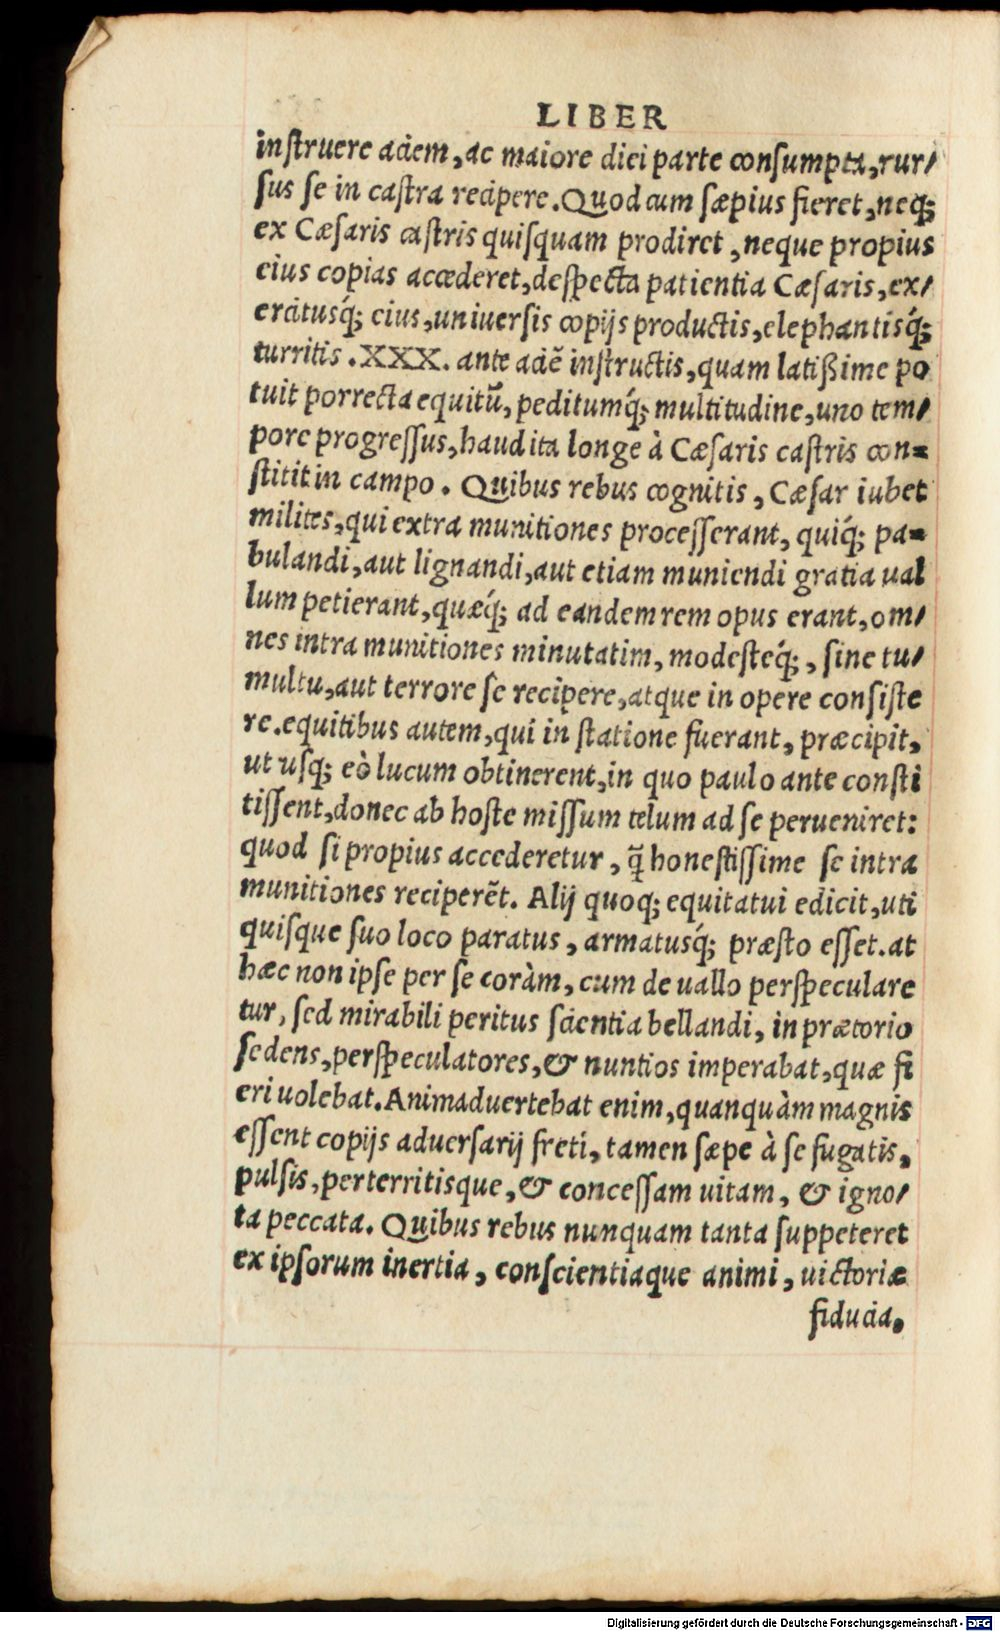 LIBER
inſtruere aciem, ac maiore diei parte conſumpta, rur/
ſus ſe in caſtra recipere. Quod cum ſæpius fieret, neq;
ex Cæſaris caſtris quiſquam prodiret, neque propius
eius copias accederet, deſpecta patientia Cæſaris, ex/
ercitusq́; eius, uniuerſis copijs productis, elephantisq́;
turritis .XXX. ante aciē inſtructis, quam latißime po
tuit porrecta equitū, peditumq́; multitudine, uno tem/
pore progreſſus, haud ita longe à Cæſaris caſtris con=
ſtitit in campo. Quibus rebus cognitis, Cæſar iubet
milites, qui extra munitiones proceſſerant, quiq́; pa=
bulandi, aut lignandi, aut etiam muniendi gratia ual
lum petierant, quæq́; ad eandem rem opus erant, om/
nes intra munitiones minutatim, modeſteq́;, ſine tu/
multu, aut terrore ſe recipere, atque in opere conſiſte
re. equitibus autem, qui in ſtatione fuerant, præcipit,
ut uſq; eò lucum obtinerent, in quo paulo ante conſti
tiſſent, donec ab hoſte miſſum telum ad ſe perueniret:
quod ſi propius accederetur, q̄ honeſtiſſime ſe intra
munitiones reciperēt. Alij quoq; equitatui edicit, uti
quiſque ſuo loco paratus, armatusq́; præſto eſſet. at
hæc non ipſe per ſe coràm, cum de uallo perſpeculare
tur, ſed mirabili peritus ſcientia bellandi, in prætorio
ſedens, perſpeculatores, & nuntios imperabat, quæ fi
eri uolebat. Animaduertebat enim, quanquàm magnis
eſſent copijs aduerſarij freti, tamen ſæpe à ſe fugatis,
pulſis, perterritisque, & conceſſam uitam, & igno/
ta peccata. Quibus rebus nunquam tanta ſuppeteret
ex ipſorum inertia, conſcientiaque animi, uictoriæ
fiducia,
Digitalisierung gefördert durch die Deutsche Forschungsgemeinschaft - DFG